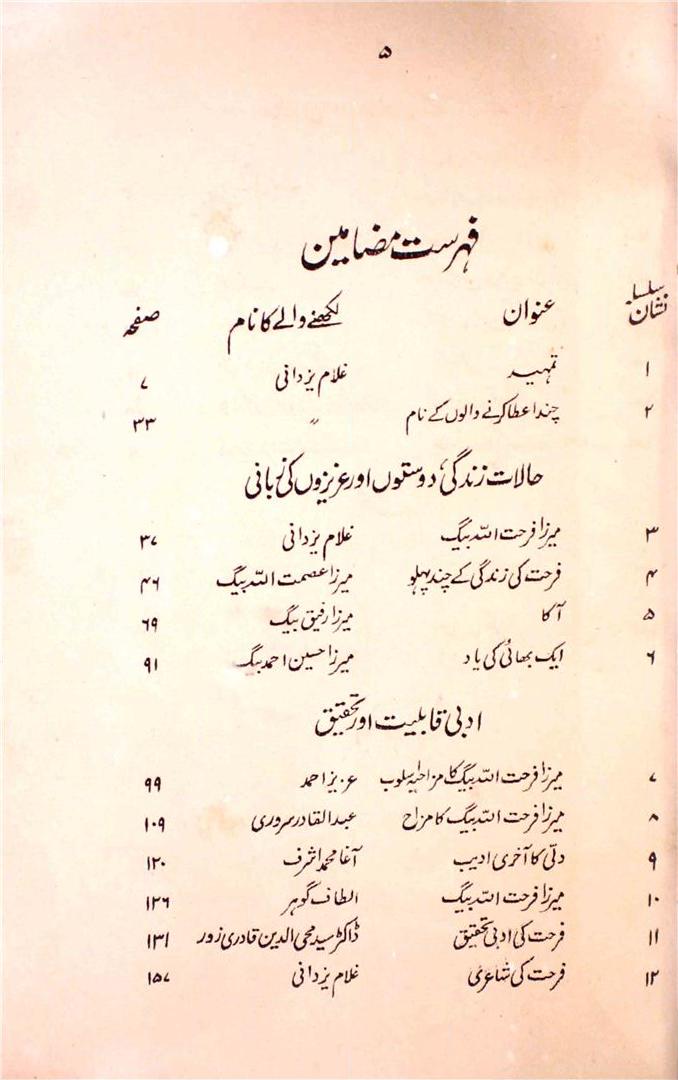 ۵
فہرست مضامین
سلسلہ نشان عنوان لکھنے والے کا نام صفحہ
۱ تمہید غلام یزدانی ۷
۲ چندا عطا کرنے والوں کے نام ” ۳۳
حالات زندگی، دوستوں اور عزیزوں کی زبانی
۳ میرزا فرحت اللہ بیگ غلام یزدانی ۳۷
۴ فرحت کی زندگی کے چند پہلو میرزا عصمت اللہ بیگ ۴۶
۵ آکا میرزا رفیق بیگ ۶۹
۶ ایک بھائی کی یاد میرزا حسین احمد بیگ ۹۱
ادبی قابلیت اور تحقیق
۷ میرزا فرحت اللہ بیگ کا مزاحیہ اسلوب عزیز احمد ۹۹
۸ میرزا فرحت اللہ بیگ کا مزاح عبدالقادر سروری ۱۰۹
۹ دلّی کا آخری ادیب آغا محمد اشرف ۱۲۰
۱۰ میرزا فرحت اللہ بیگ الطاف گوہر ۱۲۶
۱۱ فرحت کی ادبی تحقیق ڈاکٹر سید محی الدین قادری زور ۱۳۱
۱۲ فرحت کی شاعری غلام یزدانی ۱۵۷